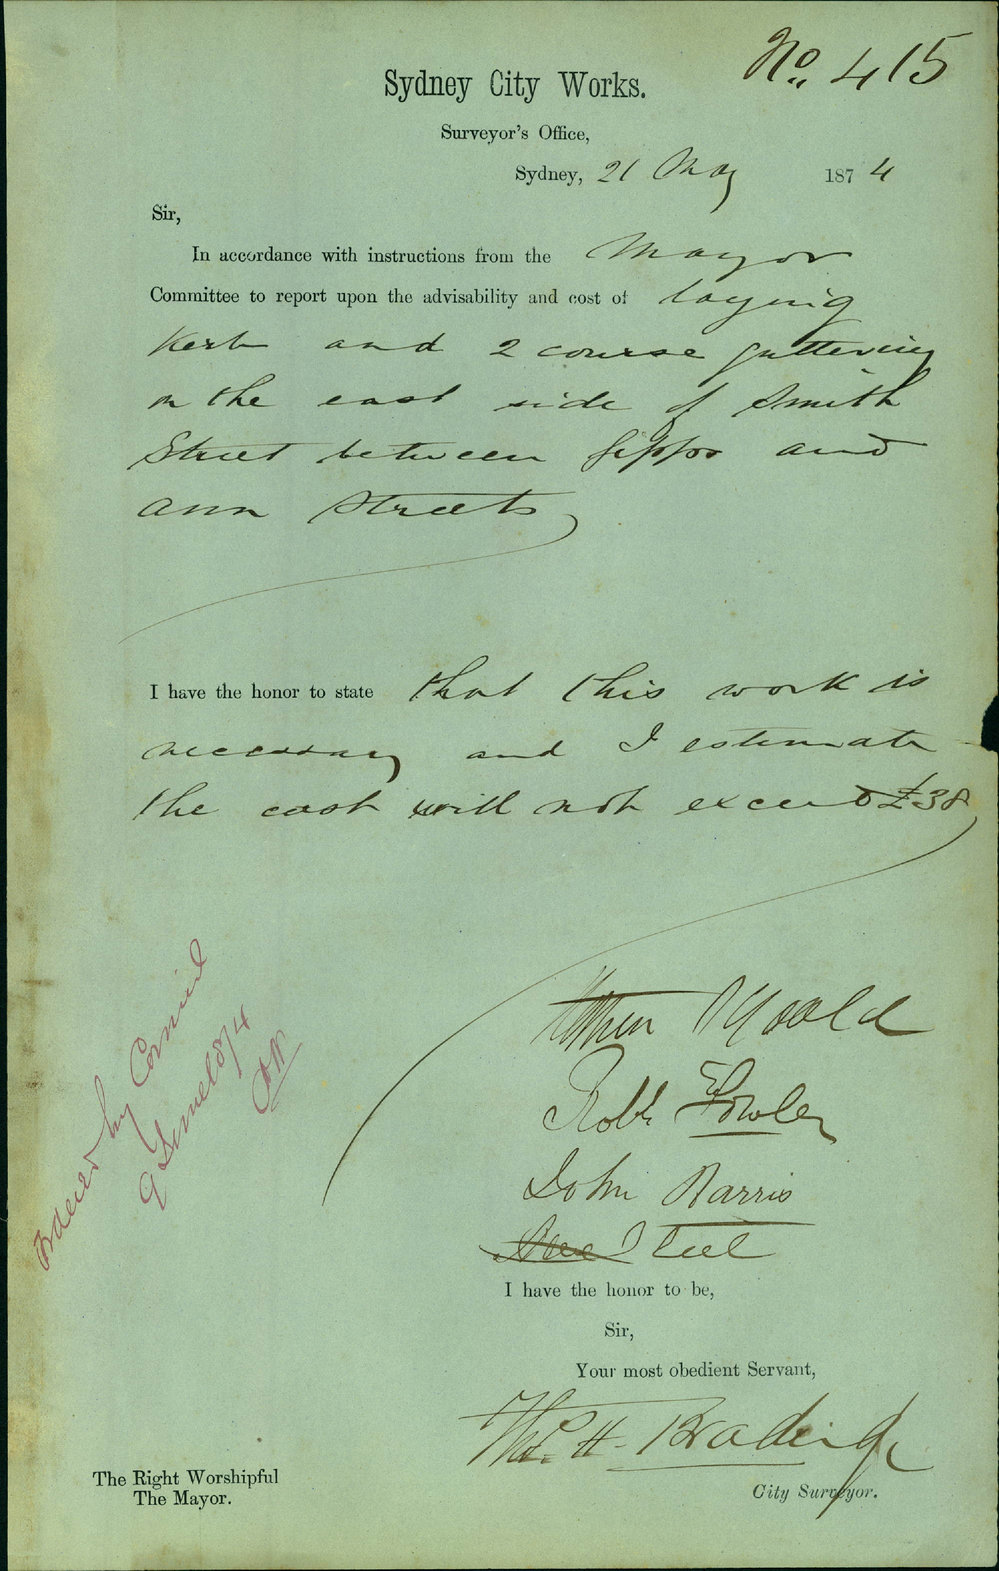 No. 415
Sydney City Works.
Surveyor's Office,
Sydney, 21 May 1874
Sir,
In accordance with instructions from the Mayor
Committee to report upon the advisability and cost of laying
Kerb and 2 course guttering
on the east side of Smith
Street between Gipps and
Ann Streets
I have the honor to state that this work is
necessary and I estimate
the cost will not exceed £38
Robt. Fowler
John Harris
Steel
I have the honor to be,
Sir,
Your most obedient Servant,
Thos. H. Bradridge
City Surveyor.
The Right Worshipful
The Mayor.
Ordered by Council
9 June 1874